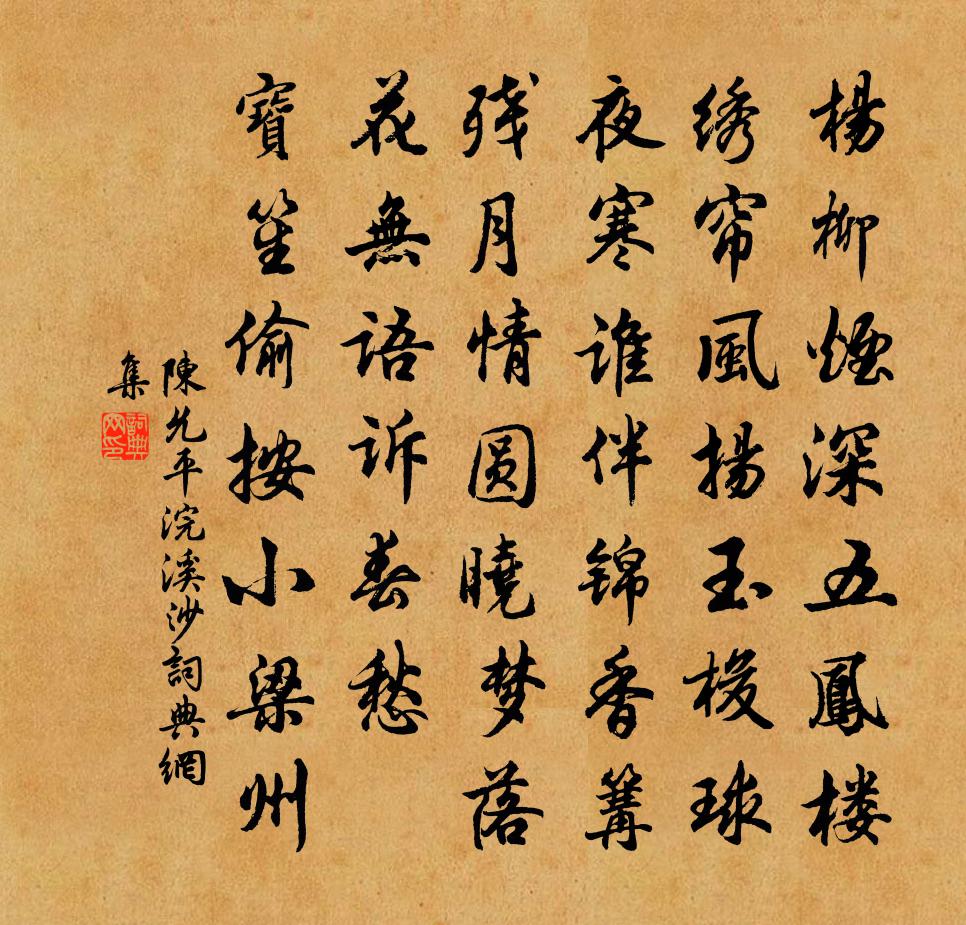 楊柳煙深五鳳楼
绣帘風揚玉梭球
夜寒誰伴锦香篝
残月情圆曉梦落
花無語诉春愁
寶笙偷按小梁州
陳允平浣溪沙詞典網
集
詞典网印